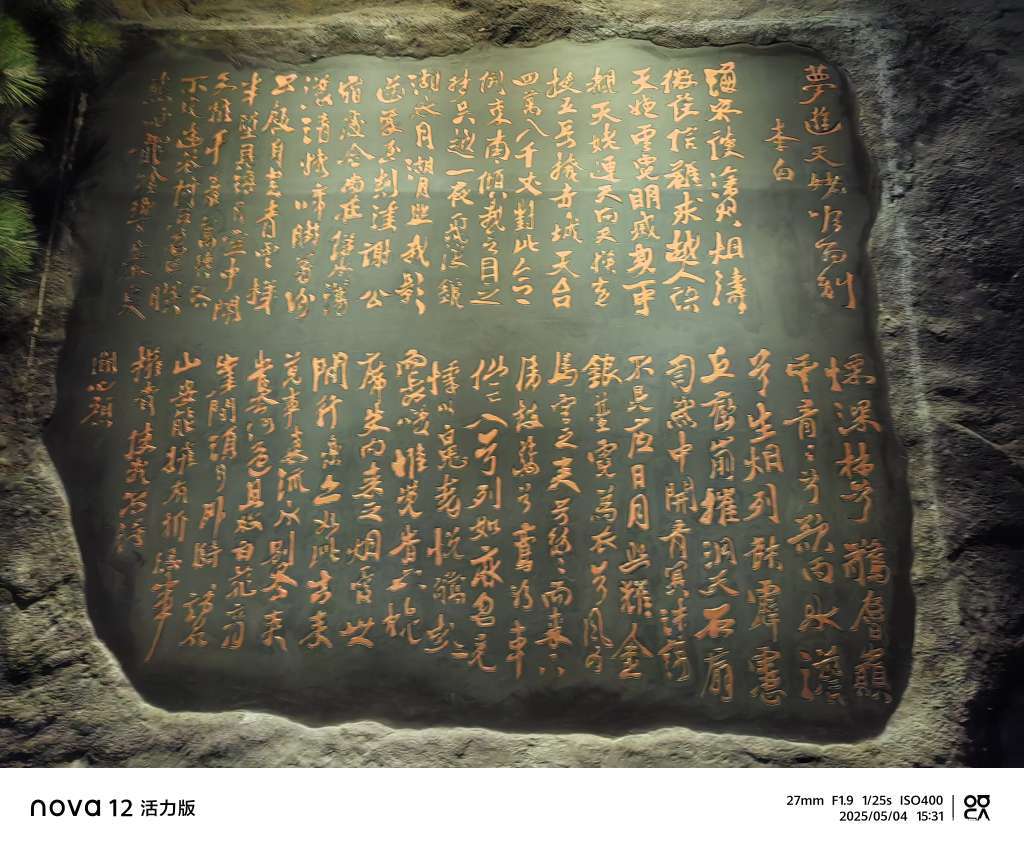 夢遊天姥吟留别
李白
海客談瀛洲烟濤
微茫信難求越人語
天姥雲霓明滅或可
覩天姥連天向天横勢
拔五岳掩赤城天台
四萬八千丈對此欲
倒東南傾我欲因之
夢吴越一夜飛渡鏡
湖水月湖月照我影
送我至剡溪謝公
宿處今尚在渌水蕩
漾清猿啼脚著謝
公屐身登青雲梯
半壁見海日空中聞
天雞千巖萬轉路
不定迷花倚石忽已暝
熊咆龍吟殷巖泉
慄深林兮驚層巔
雲青々兮欲雨水澹
々兮生烟列缺霹靂
丘巒崩摧洞天石扇
訇然中開青冥浩蕩
不見底日月照耀金
銀臺霓爲衣兮風爲
馬雲之君兮紛々而来下
虎鼓瑟兮鸞迴車
仙之人兮列如麻忽魂
悸以魄動怳驚起
而長嗟惟覺時之枕
席失向来之烟霞世
間行樂亦如此古来
萬事東流水别君去
兮何時還且放白鹿青
崖間須行即騎訪名
山安能摧眉折腰事
權貴使我不得
開心顔
nova 12 活力版
27mm F1.9 1/25s ISO400
2025/05/04 15:31